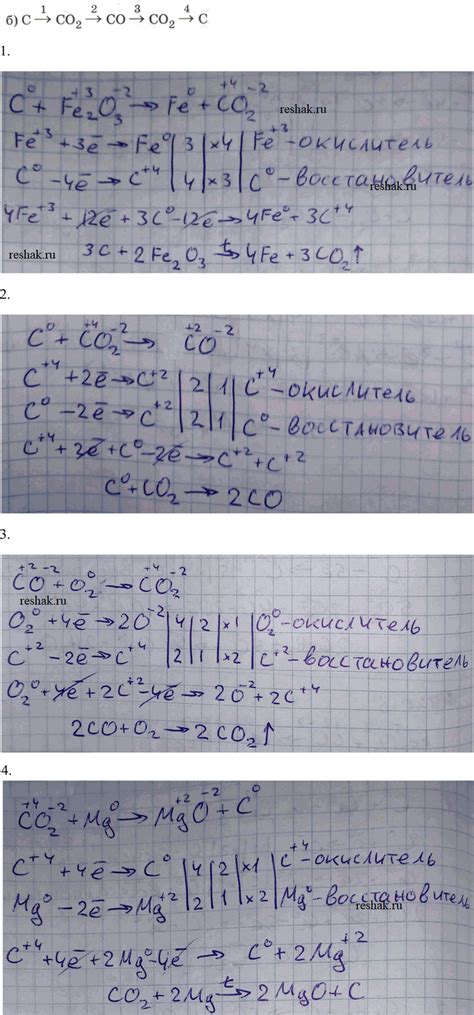 б) C 1→ CO₂ 2→ CO 3→ CO₂ 4→ C
1.
C⁰ + Fe₂⁺³O₃⁻² → Fe⁰ + C⁺⁴O₂⁻²
reshak.ru
Fe⁺³ + 3ē → Fe⁰ | 3 | ×4 | Fe⁺³ - окислитель
C⁰ - 4ē → C⁺⁴ | 4 | ×3 | C⁰ - восстановитель
reshak.ru
4Fe⁺³ + 12ē + 3C⁰ - 12ē → 4Fe⁰ + 3C⁺⁴
reshak.ru
3C + 2Fe₂O₃ t→ 4Fe + 3CO₂↑
2.
C⁰ + C⁺⁴O₂⁻² → C⁺²O⁻²
C⁺⁴ + 2ē → C⁺² | 2 | 1 | C⁺⁴ - окислитель
C⁰ - 2ē → C⁺² | 2 | 1 | C⁰ - восстановитель
C⁺⁴ + 2ē + C⁰ - 2ē → C⁺² + C⁺²
reshak.ru
C⁰ + CO₂ → 2CO
3.
C⁺²O⁻² + O₂⁰ → C⁺⁴O₂⁻²
reshak.ru
O₂⁰ + 4ē → 2O⁻² | 4 | 2 | ×1 | O₂⁰ - окислитель
C⁺² - 2ē → C⁺⁴ | 2 | 1 | ×2 | C⁺² - восстановитель
O₂⁰ + 4ē + 2C⁺² - 4ē → 2O⁻² + 2C⁺⁴
2CO + O₂ → 2CO₂↑
4.
C⁺⁴O₂⁻² + Mg⁰ → Mg⁺²O⁻² + C⁰
C⁺⁴ + 4ē → C⁰ | 4 | 2 | ×1 | C⁺⁴ - окислитель
Mg⁰ - 2ē → Mg⁺² | 2 | 1 | ×2 | Mg⁰ - восстановитель
reshak.ru
C⁺⁴ + 4ē + 2Mg⁰ - 4ē → C⁰ + 2Mg⁺²
CO₂ + 2Mg t→ 2MgO + C